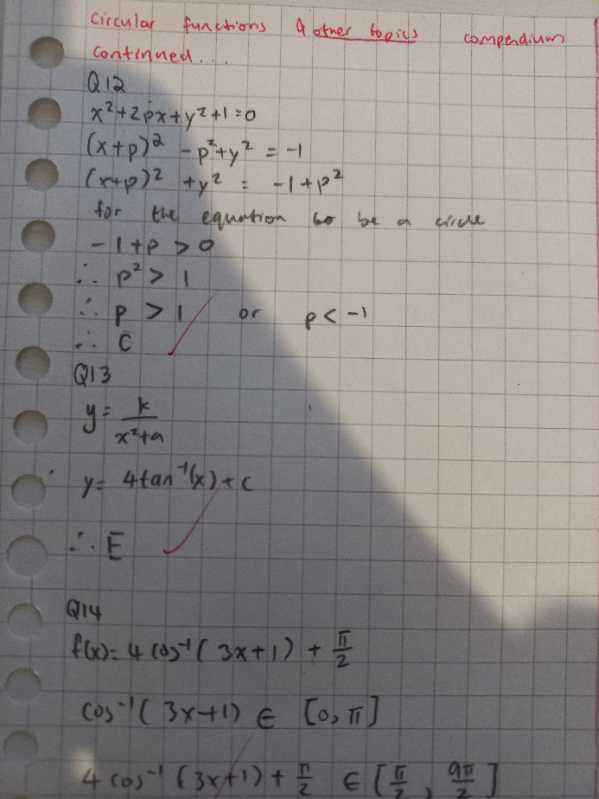 Circular functions & other topics compendium
continued...
Q12
x²+2px+y²+1=0
(x+p)² -p²+y² = -1
(x+p)² +y² = -1+p²
for the equation to be a circle
-1+p > 0
∴ p² > 1
∴ p > 1 or p < -1
∴ C
Q13
y = k/(x²+a)
y = 4tan⁻¹(x)+c
∴ E
Q14
f(x)= 4 cos⁻¹( 3x+1) + π/2
cos⁻¹( 3x+1) ∈ [0, π]
4 cos⁻¹ (3x+1) + π/2 ∈ [π/2, 9π/2]